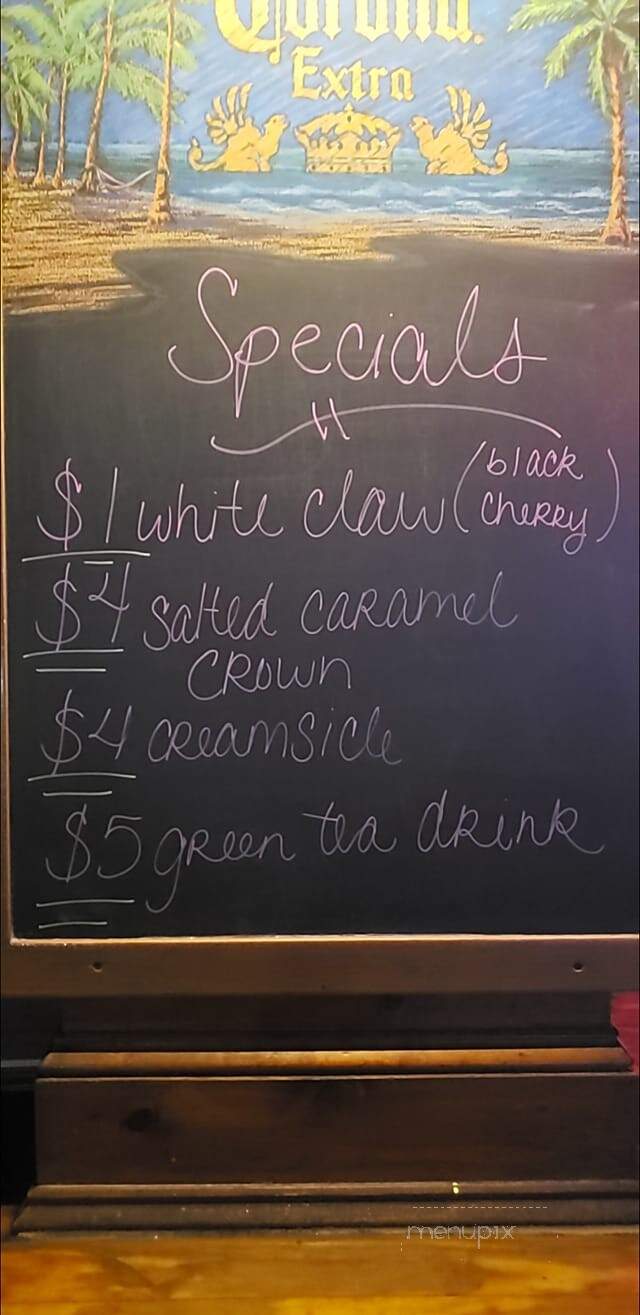 Corona
Extra
Specials
$1 white claw (black
cherry)
$4 salted caramel
crown
$4 creamsicle
$5 green tea drink
menupix